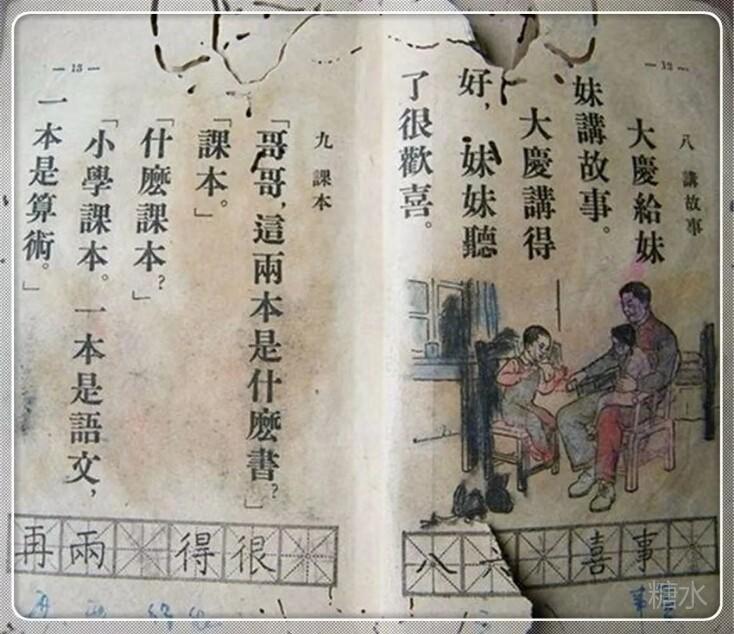 — 12 —
八 講故事
大慶給妹
妹講故事。
大慶講得
好，妹妹聽
了很歡喜。
事
喜
六
八
— 13 —
九 課本
「哥哥，這兩本是什麽書？」
「課本。」
「什麽課本？」
「小學課本。一本是語文，
一本是算術。」
很
得
兩
再
糖水